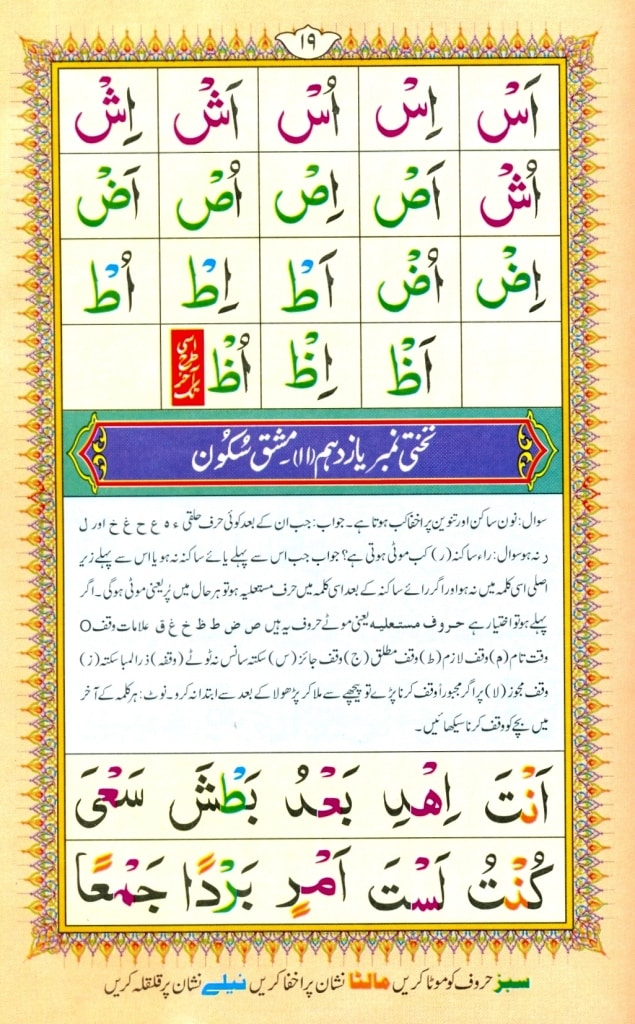 ۱۹
اَسْ اِسْ اُسْ اَشْ اِشْ
اُشْ اَصْ اِصْ اُصْ اَضْ
اِضْ اُضْ اَطْ اِطْ اُطْ
اَظْ اِظْ اُظْ اسی طرح آخر تک
تختی نمبر یازدہم (۱۱)۔ مشق سُکُون
سوال: نون ساکن اور تنوین پر اخفا کب ہوتا ہے۔ جواب: جب ان کے بعد کوئی حرف حلقی ء ہ ع ح غ خ اور ل
ر نہ ہو سوال: راء ساکنہ (ر) کب موٹی ہوتی ہے؟ جواب جب اس سے پہلے یائے ساکنہ نہ ہو یا اس سے پہلے زیر
اصلی اسی کلمہ میں نہ ہو اور اگر رائے ساکنہ کے بعد اسی کلمہ میں حرف مستعلیہ ہو تو ہر حال میں پُر یعنی موٹی ہوگی۔ اگر
پہلے ہو تو اختیار ہے حروف مستعلیہ یعنی موٹے حروف یہ ہیں ص ض ط ظ خ غ ق علامات وقف O
وقت تام (م) وقف لازم (ط) وقف مطلق (ج) وقف جائز (س) سکتہ سانس نہ ٹوٹے (وقفہ) ذرا لمبا سکتہ (ز)
وقف مجوز (لا) پر اگر مجبوراً وقف کرنا پڑے تو پیچھے سے ملا کر پڑھو لا کے بعد سے ابتدا نہ کرو۔ نوٹ: ہر کلمہ کے آخر
میں بچے کو وقف کرنا سیکھائیں۔
اَنْتَ اِهْدِ بَعْدُ بَطْشَ سَعْیَ
كُنْتُ لَسْتَ اَمْرٍ بَرْدًا جَمْعًا
سبز حروف کو موٹا کریں مالٹا نشان پر اخفا کریں نیلے نشان پر قلقلہ کریں